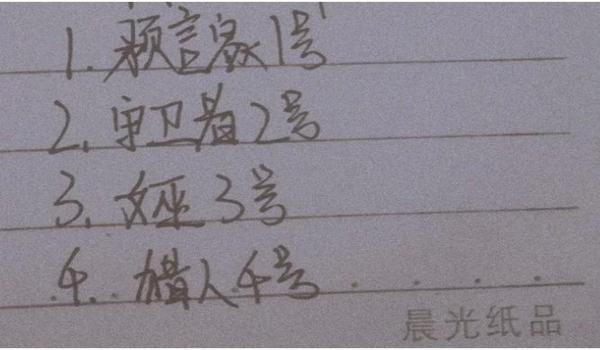 1. 预言家1号
2. 守卫者2号
3. 女巫3号
4. 猎人4号
晨光纸品